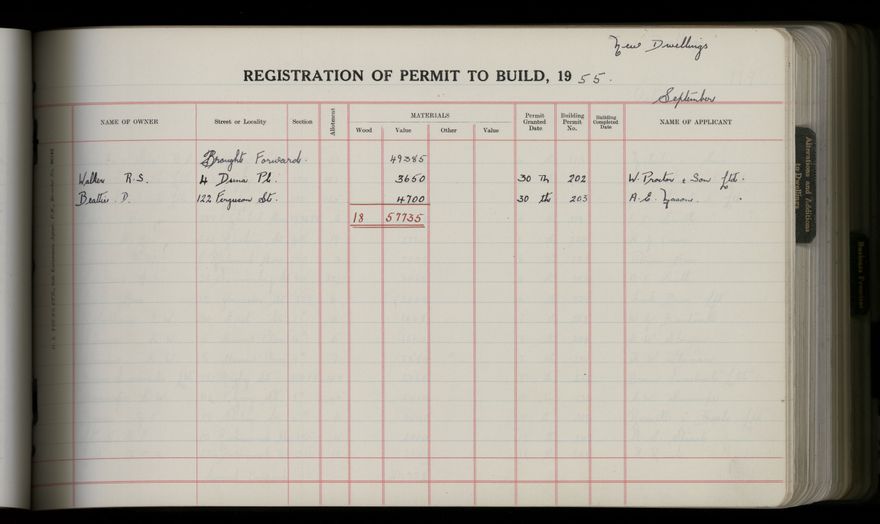 New Dwellings
REGISTRATION OF PERMIT TO BUILD, 1955.
September
NAME OF OWNER Street or Locality Section Allotment MATERIALS Wood Value Other Value Permit Granted Date Building Permit No. Building Completed Date NAME OF APPLICANT
Brought Forward. 49385
Walker R.S. 4 Pl. 3650 30 Th 202 W. Procter & Son Ltd.
Beattie. D. 122 Ferguson St. 4700 30 th 203 A. E.
18 57735
Alterations and Additions to Dwellings
Business Premises